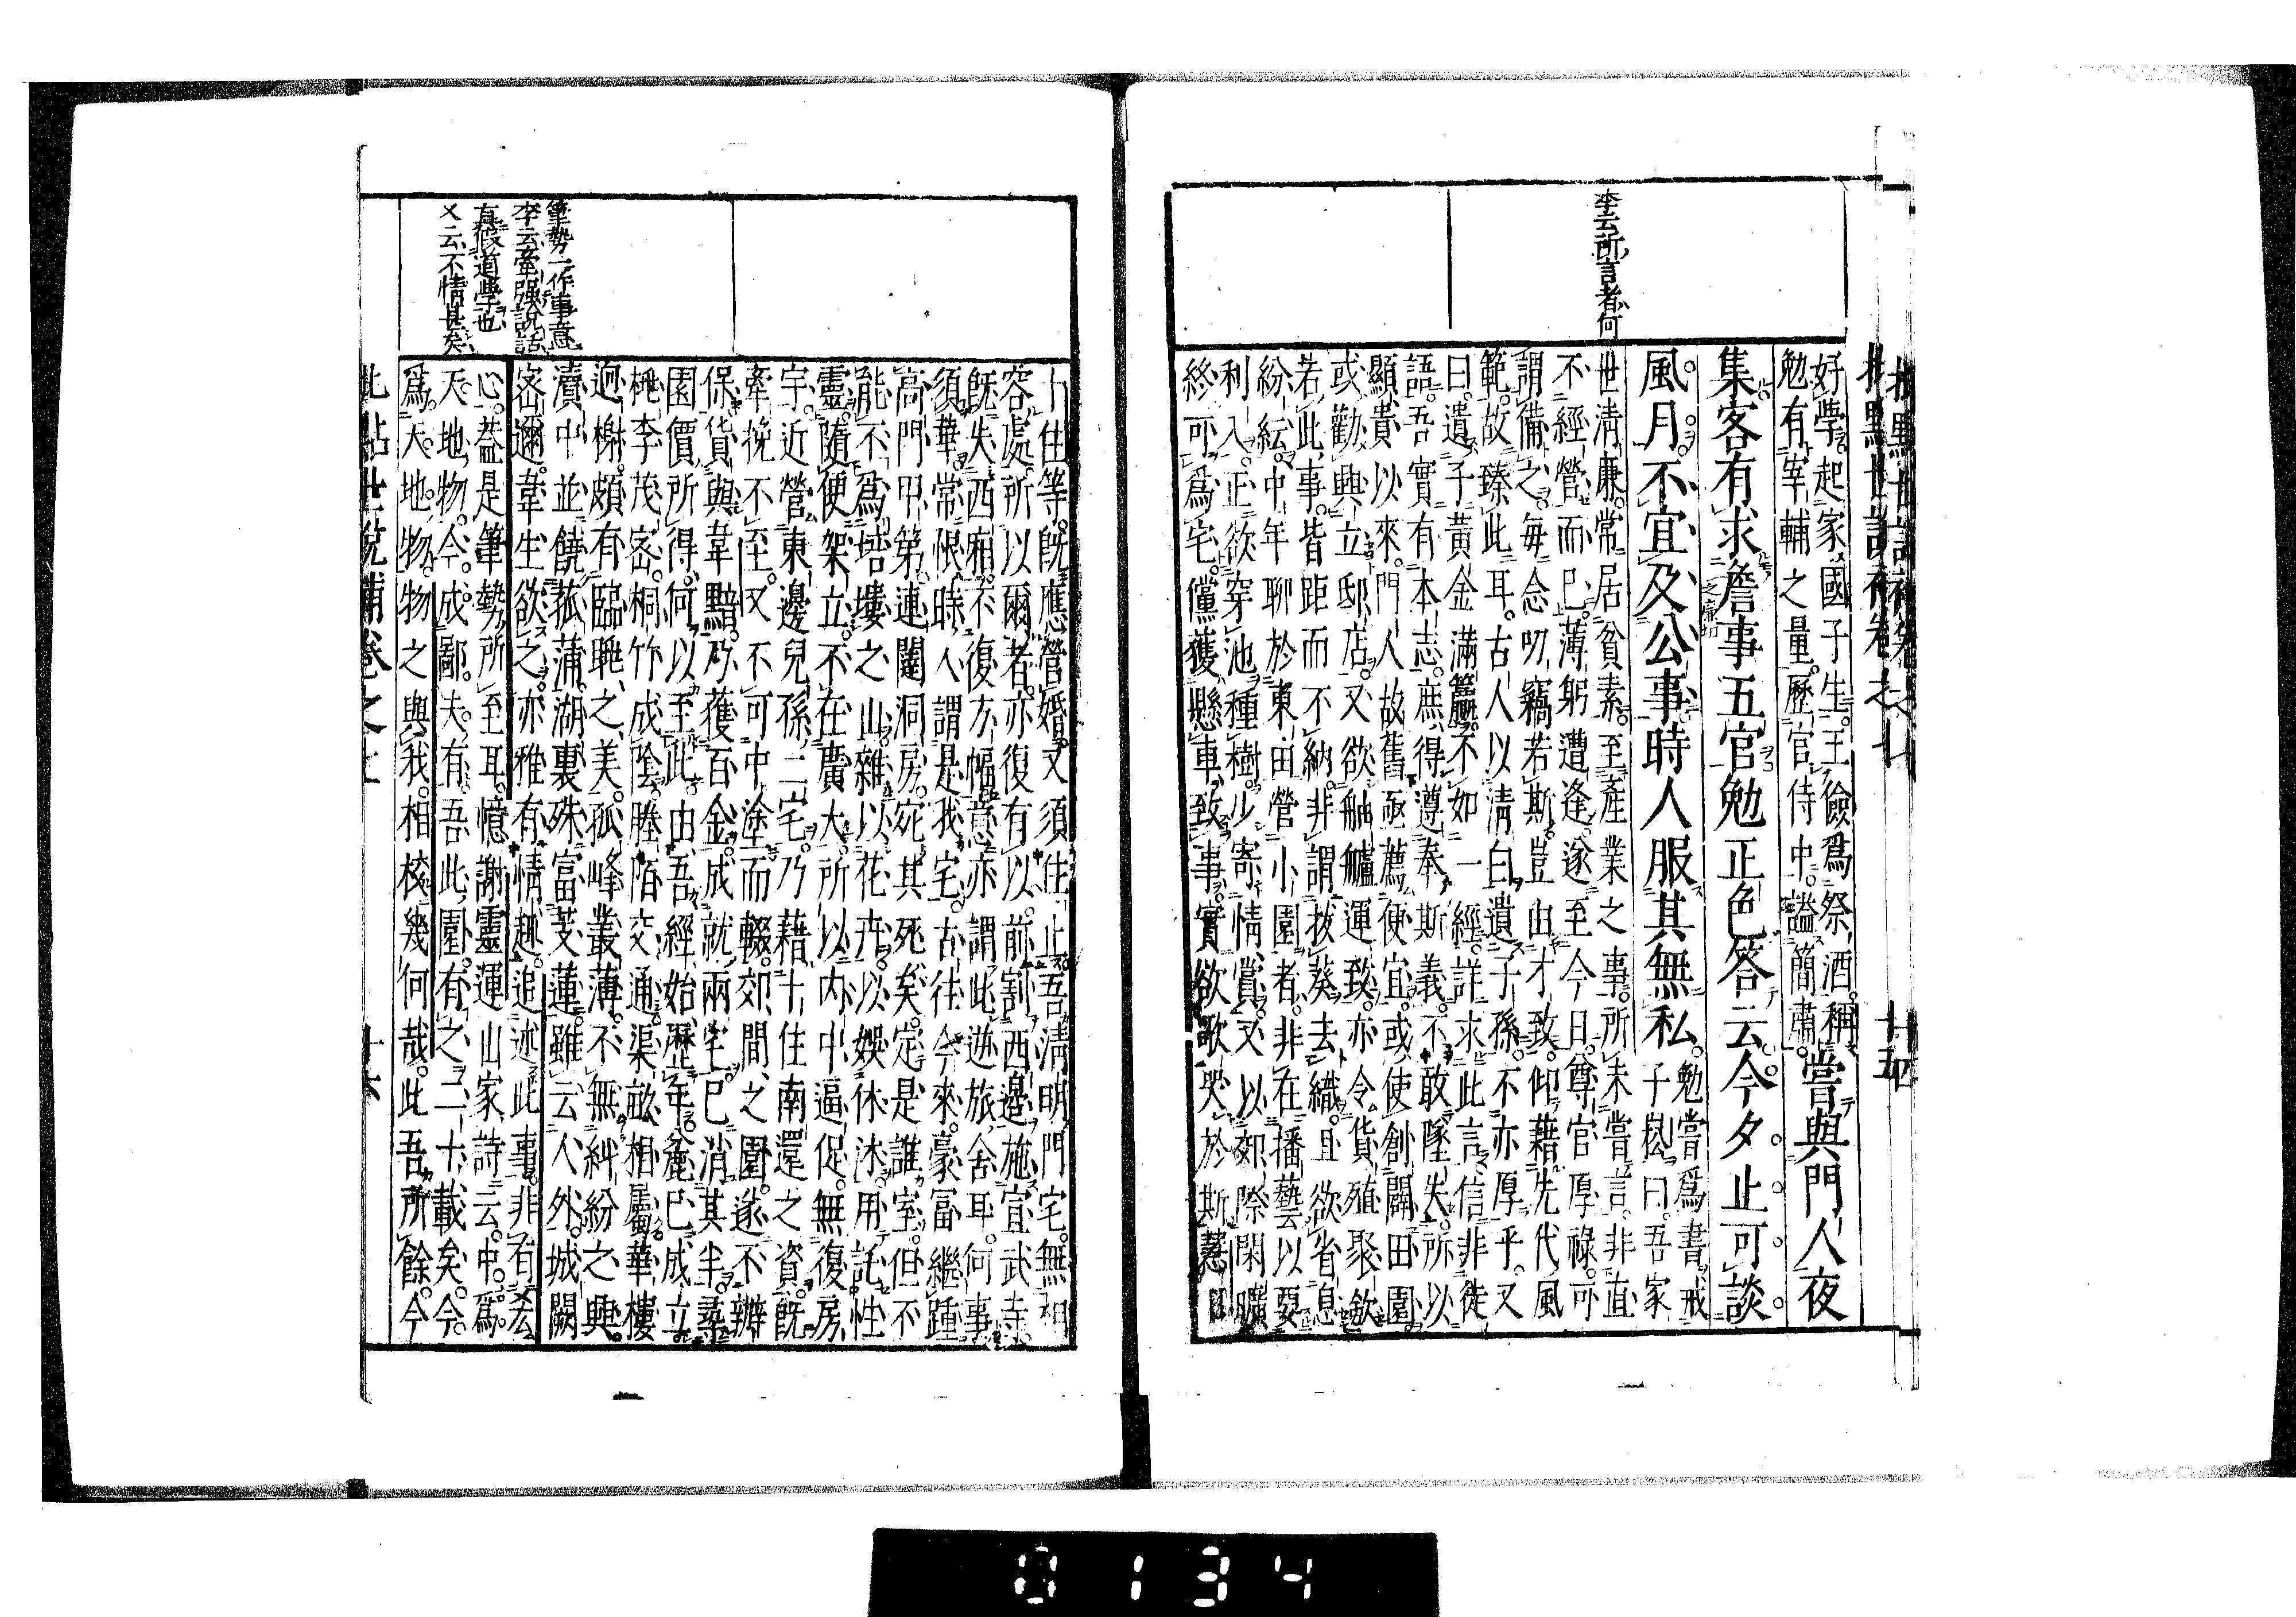 李云所言者何
好学起家國子生王儉爲祭酒稱
勉有宰輔之量歷官侍中謚簡肅
嘗與門人夜
集客有求詹事五官勉正色答云今夕止可談
風月不宜及公事時人服其無私
勉嘗爲書戒
子崧曰吾家
世清廉常居貧素至產業之事所未嘗言非直
不經營而已薄躬遭逢遂至今日尊官厚祿可
謂備之每念叨竊若斯豈由才致仰藉先代風
範故臻此耳古人以清白遺子孫不亦厚乎又
曰遺子黃金滿籯不如一經詳求此言信非徒
語吾實有本志庶得遵奉斯義不敢墜失所以
顯貴以來門人故舊亟薦便宜或使創闢田園
或勸興立邸店又欲舳艫運致亦令貨殖聚斂
若此事皆距而不納非謂拔葵去織且欲省息
紛紜中年聊於東田營小園者非在播藝以要
利入正欲穿池種樹少寄情賞又以郊際閑曠
終可爲宅儻獲懸車致事實欲歌哭於斯慧日
十住等既應營婚又須住止吾清明門宅無相
容處所以爾者亦復有以前割西邊施宣武寺
既失西廂不復方幅意亦謂此逆旅舍耳何事
須華常恨時人謂是我宅古往今來豪富繼踵
高門甲第連闥洞房宛其死矣定是誰室但不
能不爲培塿之山雜以花卉以娛休沐用託性
靈隨便架立不在廣大所以內中逼促無復房
宇近營東邊兒孫二宅乃藉十住南還之資既
牽挽不至又不可中塗而輟郊間之園遂不辦
保貨與韋黯乃獲百金成就兩宅已消其半尋
園價所得何以至此由吾經始歷年麁已成立
桃李茂宻桐竹成陰塍陌交通渠畝相屬華樓
迥榭頗有臨眺之美孤峰叢薄不無糾紛之興
瀆中並饒菰蒲湖裏殊富芰蓮雖云人外城闕
宻邇韋生欲之亦雅有情趣追述此事非有吝
心蓋是筆勢所至耳憶謝靈運山家詩云中爲
天地物今成鄙夫有吾此園有之二十載矣今
爲天地物物之與我相校幾何哉此吾所餘今
筆勢一作事意
李云牽强說話
真假道學也
又云不情甚矣